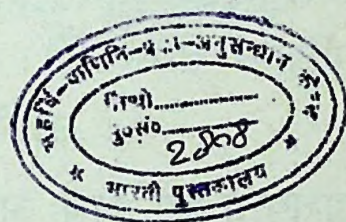 महर्षि-पाणिनि-
-अनुसन्धान केन्द्र
पु०सं०..............
2808
* भारती पुस्तकालय *